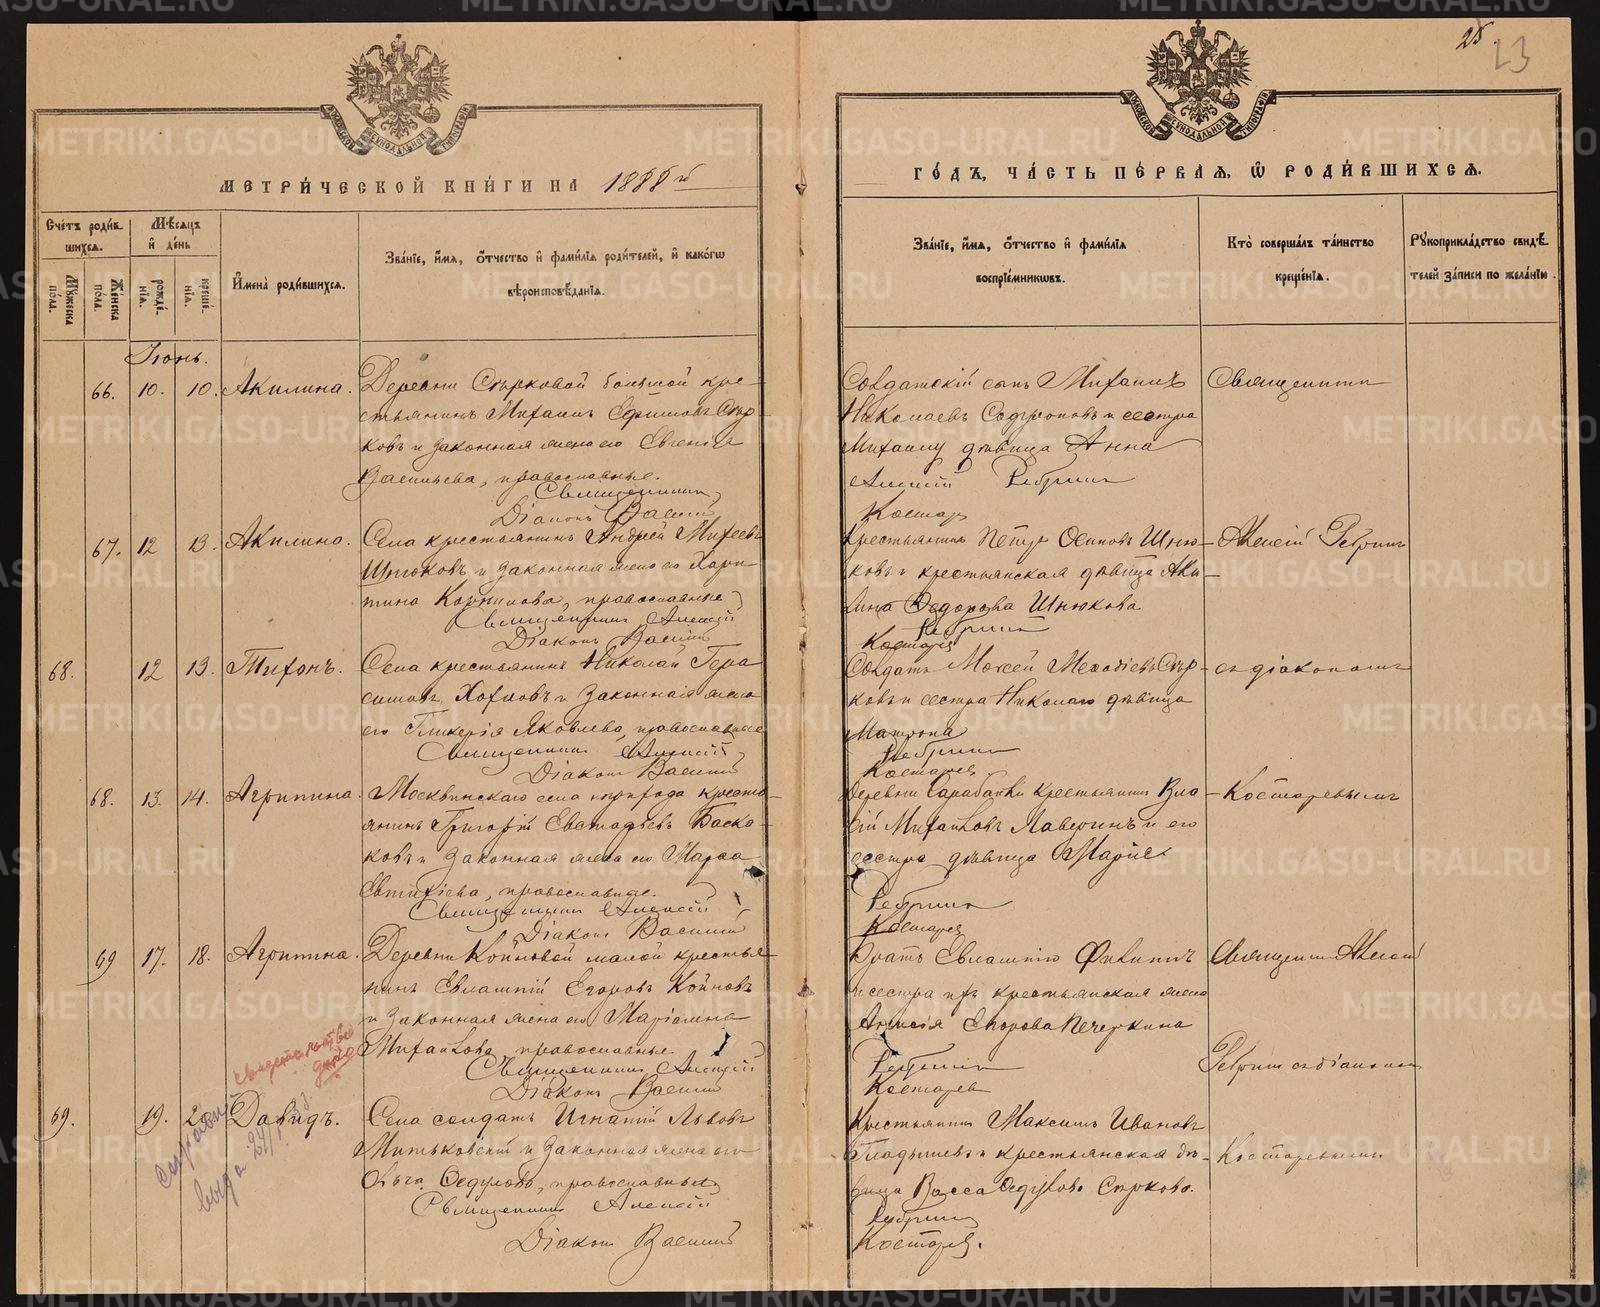 25.
23
МЕТРИЧЕСКОЙ КНИГИ НА 1888 й
ГОДЪ, ЧАСТЬ ПЕРВАЯ, Ѡ РОДИВШИХСЯ.
Счетъ родившихся.
Мужеска пола.
Женска пола.
Мѣсяцъ и день
рожденія.
крещенія.
Имена родившихся.
Званіе, имя, отчество и фамилія родителей, и какогѡ вѣроисповѣданія.
Званіе, имя, отчество и фамилія воспріемникѡвъ.
Кто совершалъ таинство крещенія.
Рукоприкладство свидѣтелей записи по желанію.
Іюнь.
66. 10. 10. Акилина.
Деревни Сѣрковой большой кре-
стьянинъ Михаилъ Ефимовъ Сѣр-
ковъ и законная жена его Евгенія
Васильева, православные.
Священникъ
Діаконъ Василій
Солдатскій сынъ Михаилъ
Николаевъ и сестра
Михаилу дѣвица Анна
Алексій Ребринъ
Костарев
Священникъ
67. 12 13. Акилина.
Села крестьянинъ Андрей Михеевъ
Шнюковъ и законная жена его Хари-
тина Корнилова, православные
Священникъ Алексій
Діаконъ Василій
Крестьянинъ Петръ Осиповъ Шню-
ковъ и крестьянская дѣвица Аки-
лина Федорова Шнюкова
Ребринъ
Костарев
Алексій Ребринъ
68. 12 13. Тихонъ.
Села крестьянинъ Николай Гера-
симовъ и законная жена
его Гликерія Яковлева, православные
Священникъ Алексій
Діаконъ Василій
Солдатъ Моисей Меѳодіевъ Сѣр-
ковъ и сестра Николаю дѣвица
Матрона
Ребринъ
Костарев
съ діакономъ
68. 13. 14. Агрипина.
Москвинскаго села крестья-
янинъ Григорій Евстафьевъ Баска-
ковъ и законная жена его Марѳа
Евтихіева, православные.
Священникъ Алексій
Діаконъ Василій
Деревни Сарабайки крестьянинъ Вла-
сій Михайловъ Лавегинъ и его
сестра дѣвица Марія.
Ребринъ
Костарев
Костаревымъ
69 17. 18. Агрипина.
Деревни Койновой малой крестья-
нинъ Евлампій Егоровъ Койновъ
и законная жена его Маріамна
Михайлова, православные
Священникъ Алексій
Діаконъ Василій
Братъ Евлампію Филиппъ
и сестра ихъ крестьянская жена
Анисія Егорова Печеркина
Ребринъ
Костарев
Священникъ Алексій
Ребринъ съ діакономъ
свидетельство
дано
69. 19. 20 Давидъ.
Села солдатъ Игнатій Львовъ
Митьковскій и законная жена его
Ольга Федулова, православные
Священникъ Алексій
Діаконъ Василій
Крестьянинъ Максимъ Ивановъ
Гладышевъ и крестьянская дѣ-
вица Васса Федулова Сѣркова.
Ребринъ
Костарев.
Костаревымъ
METRIKI.GASO-URAL.RU